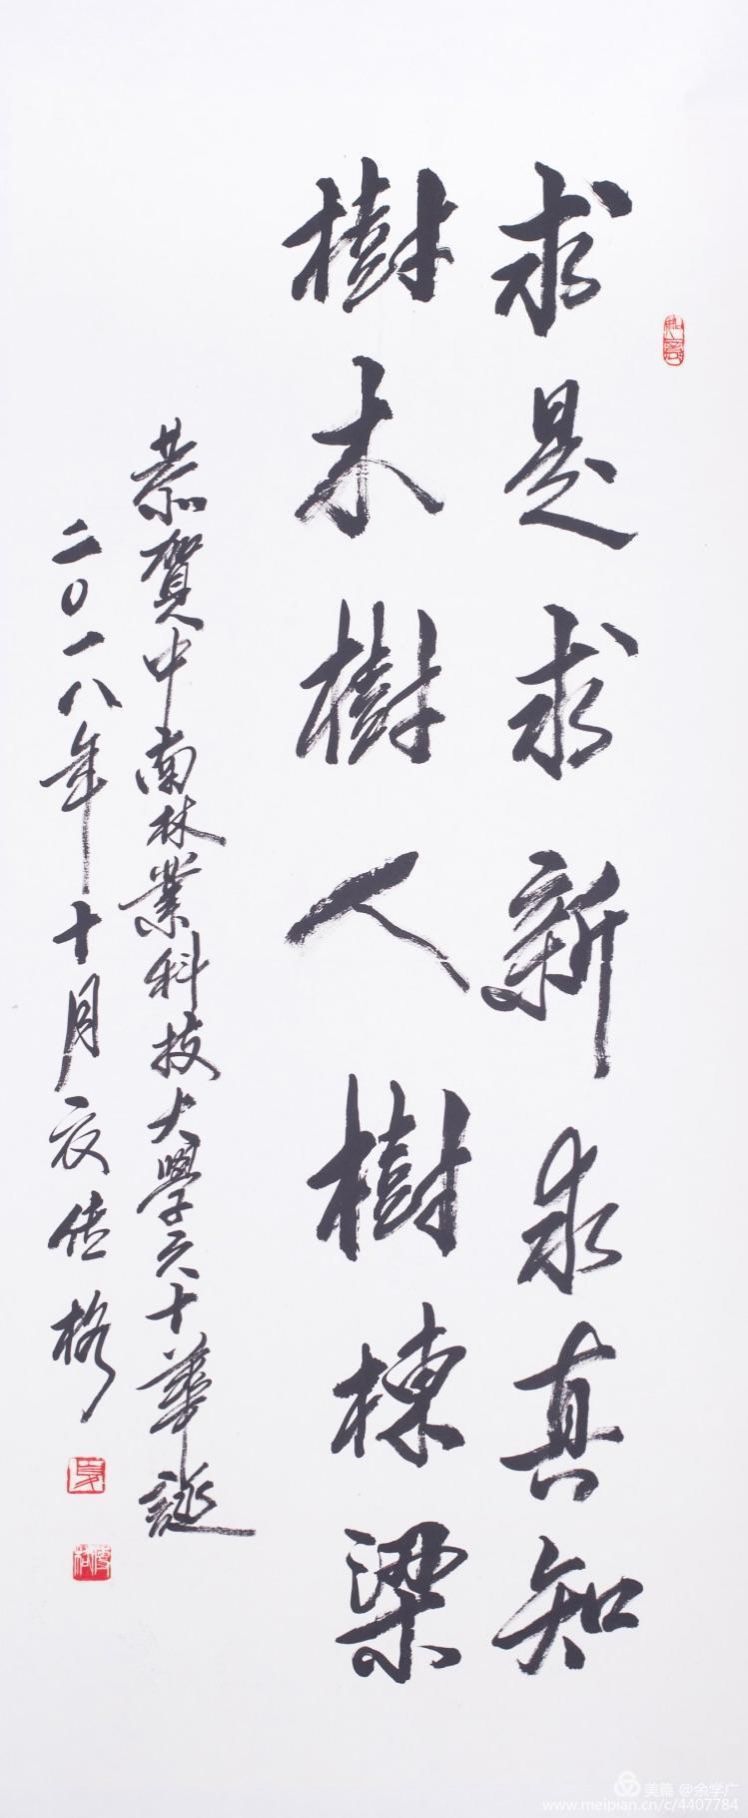 求是求新求真知
樹木樹人樹棟梁
恭賀中南林業科技大學六十華誕
二〇一八年十月夏传格
美篇 @余学广
www.meipian.cn/c/4407784